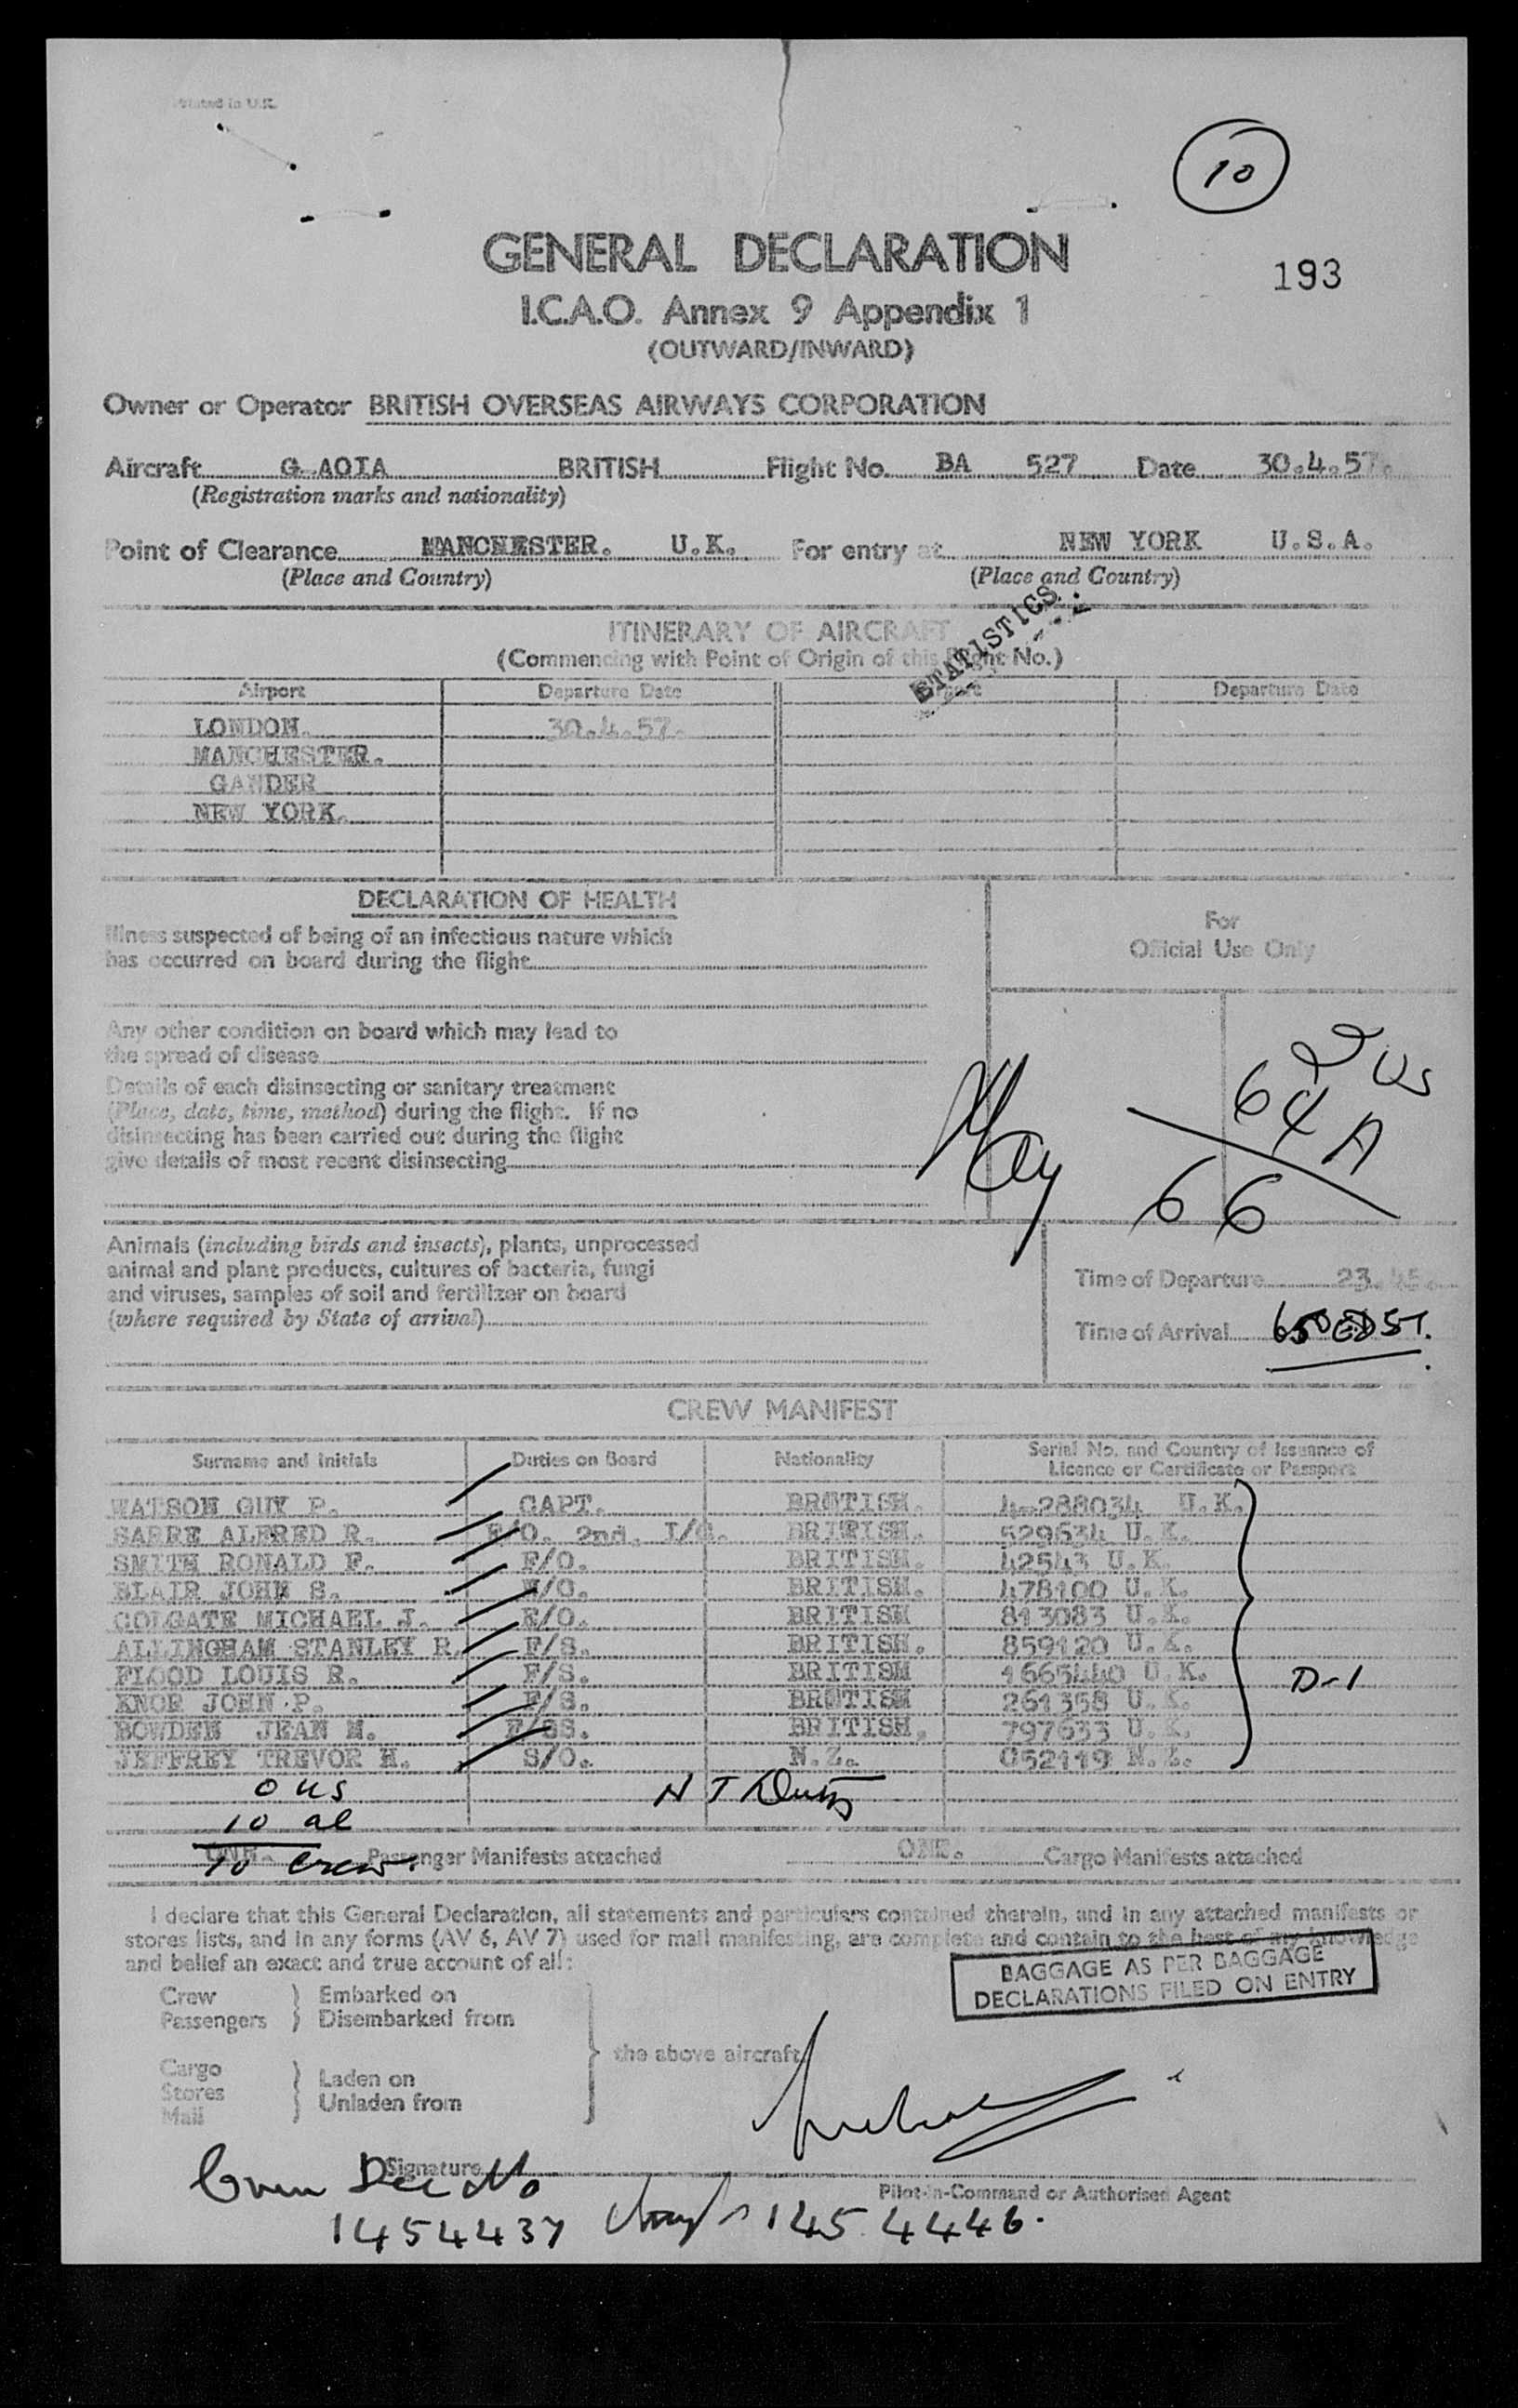 Printed in U.K.
10
GENERAL DECLARATION
193
I.C.A.O. Annex 9 Appendix 1
(OUTWARD/INWARD)
Owner or Operator BRITISH OVERSEAS AIRWAYS CORPORATION
Aircraft G-AOIA BRITISH Flight No. BA 527 Date 30.4.57.
(Registration marks and nationality)
Point of Clearance MANCHESTER. U.K. For entry at NEW YORK U.S.A.
(Place and Country) (Place and Country)
STATISTICS
ITINERARY OF AIRCRAFT
(Commencing with Point of Origin of this Flight No.)
Airport Departure Date Airport Departure Date
LONDON. 30.4.57.
MANCHESTER.
GANDER
NEW YORK.
DECLARATION OF HEALTH
For
Official Use Only
Illness suspected of being of an infectious nature which
has occurred on board during the flight
Any other condition on board which may lead to
the spread of disease
Details of each disinsecting or sanitary treatment
(Place, date, time, method) during the flight. If no
disinsecting has been carried out during the flight
give details of most recent disinsecting
May
2 US
64 A
66
Animals (including birds and insects), plants, unprocessed
animal and plant products, cultures of bacteria, fungi
and viruses, samples of soil and fertilizer on board
(where required by State of arrival)
Time of Departure 23.45.
Time of Arrival 650 EDST.
CREW MANIFEST
Surname and Initials Duties on Board Nationality Serial No. and Country of Issuance of
Licence or Certificate or Passport
WATSON GUY P. CAPT. BRITISH. 4-288034 U.K.
SARRE ALFRED R. F/O. 2nd. I/C. BRITISH. 529634 U.K.
SMITH RONALD F. F/O. BRITISH. 42543 U.K.
BLAIR JOHN S. N/O. BRITISH. 478100 U.K.
COLGATE MICHAEL J. E/O. BRITISH 813083 U.K.
ALLINGHAM STANLEY R. F/S. BRITISH. 859120 U.K.
FLOOD LOUIS R. F/S. BRITISH 1665440 U.K.
KNOR JOHN P. F/S. BRITISH 261358 U.K.
BOWDEN JEAN M. F/SS. BRITISH. 797633 U.K.
JEFFREY TREVOR H. S/O. N.Z. 052119 N.Z.
D-1
0 US
N T Duty
10 al
10 Crew.
ONE. Passenger Manifests attached ONE. Cargo Manifests attached
I declare that this General Declaration, all statements and particulars contained therein, and in any attached manifests or
stores lists, and in any forms (AV 6, AV 7) used for mail manifesting, are complete and contain to the best of my knowledge
and belief an exact and true account of all:
BAGGAGE AS PER BAGGAGE
DECLARATIONS FILED ON ENTRY
Crew Embarked on
Passengers Disembarked from
the above aircraft.
Cargo
Stores Laden on
Mail Unladen from
Signature
Pilot-in-Command or Authorised Agent
Dec No
1454437 145 4446.